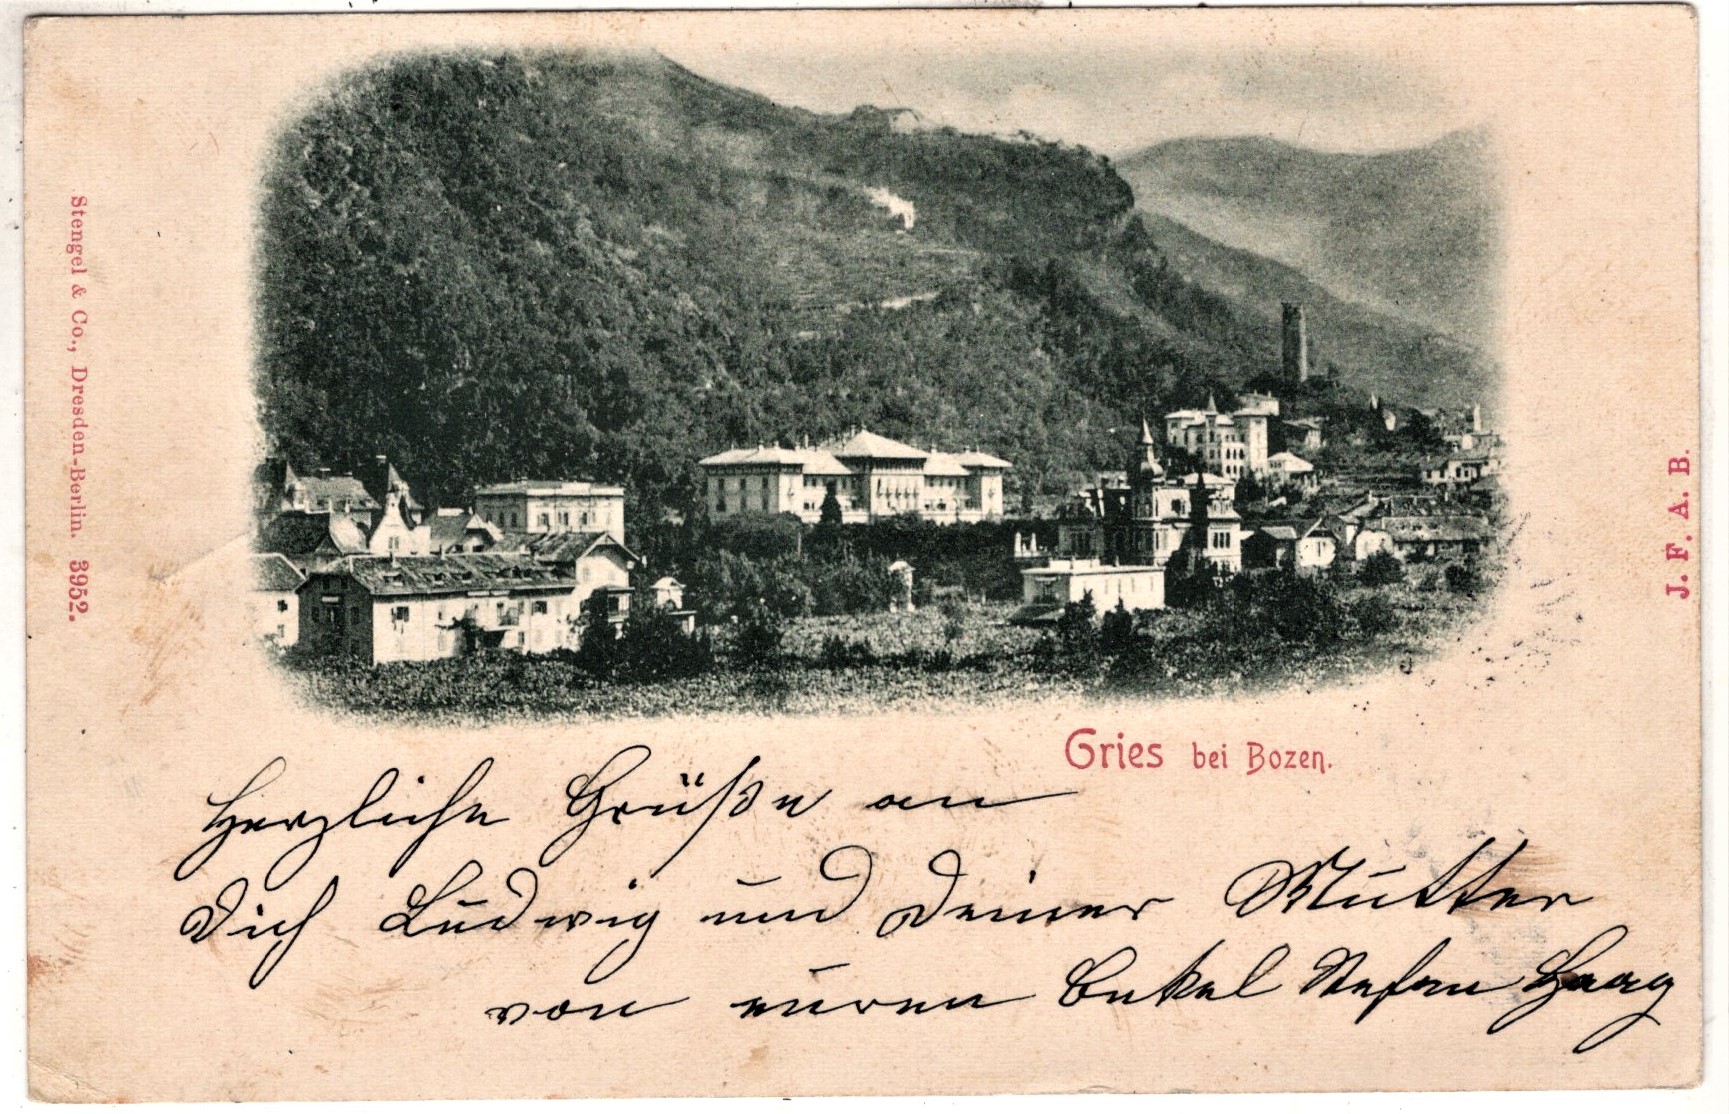 Stengel & Co., Dresden-Berlin. 3952.
J. F. A. B.
Gries bei Bozen.
Herzliche Grüße an
Dich Ludwig und Deiner Mutter
von euren Onkel Stefan Haag